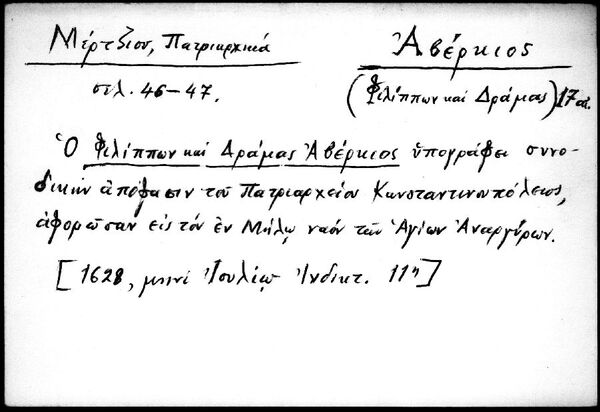 Μέρτζιου, Πατριαρχικά
σελ. 46-47.
Ἀβέρκιος
(Φιλίππων καί Δράμας) 17 αἰ.
Ὁ Φιλίππων καί Δράμας Ἀβέρκιος ὑπογράφει συνο-
δικήν ἀπόφασιν τοῦ Πατριαρχείου Κωνσταντινουπόλεως,
ἀφορῶσαν εἰς τόν ἐν Μήλῳ ναόν τῶν Ἁγίων Ἀναργύρων.
[1628, μηνί Ἰουλίῳ Ἰνδικτ. 11η]